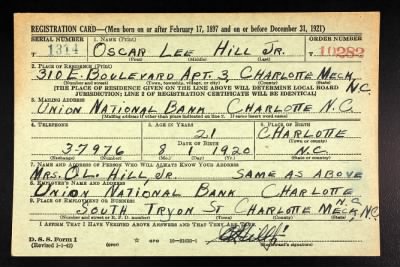 REGISTRATION CARD—(Men born on or after February 17, 1897 and on or before December 31, 1921)
SERIAL NUMBER 1. NAME (Print) ORDER NUMBER
1314 OSCAR LEE HILL JR. 10282
(First) (Middle) (Last)
2. PLACE OF RESIDENCE (Print)
310 E. BOULEVARD APT. 3, CHARLOTTE MECK. N.C.
(Number and street) (Town, township, village, or city) (County) (State)
[THE PLACE OF RESIDENCE GIVEN ON THE LINE ABOVE WILL DETERMINE LOCAL BOARD
JURISDICTION; LINE 2 OF REGISTRATION CERTIFICATE WILL BE IDENTICAL]
3. MAILING ADDRESS
UNION NATIONAL BANK CHARLOTTE N.C.
[Mailing address if other than place indicated on line 2. If same insert word same]
4. TELEPHONE 5. AGE IN YEARS 6. PLACE OF BIRTH
21 CHARLOTTE
DATE OF BIRTH (Town or county)
3-7976 8 1 1920 N.C.
(Mo.) (Day) (Yr.) (State or country)
7. NAME AND ADDRESS OF PERSON WHO WILL ALWAYS KNOW YOUR ADDRESS
MRS. O.L. HILL, JR. SAME AS ABOVE
8. EMPLOYER'S NAME AND ADDRESS
UNION NATIONAL BANK CHARLOTTE N.C.
9. PLACE OF EMPLOYMENT OR BUSINESS
SOUTH TRYON ST CHARLOTTE MECK, NC
(Number and street or R. F. D. number) (Town) (County) (State)
I AFFIRM THAT I HAVE VERIFIED ABOVE ANSWERS AND THAT THEY ARE TRUE.
D. S. S. Form 1
(Revised 1-1-42) (over) GPO
(Registrant's signature)